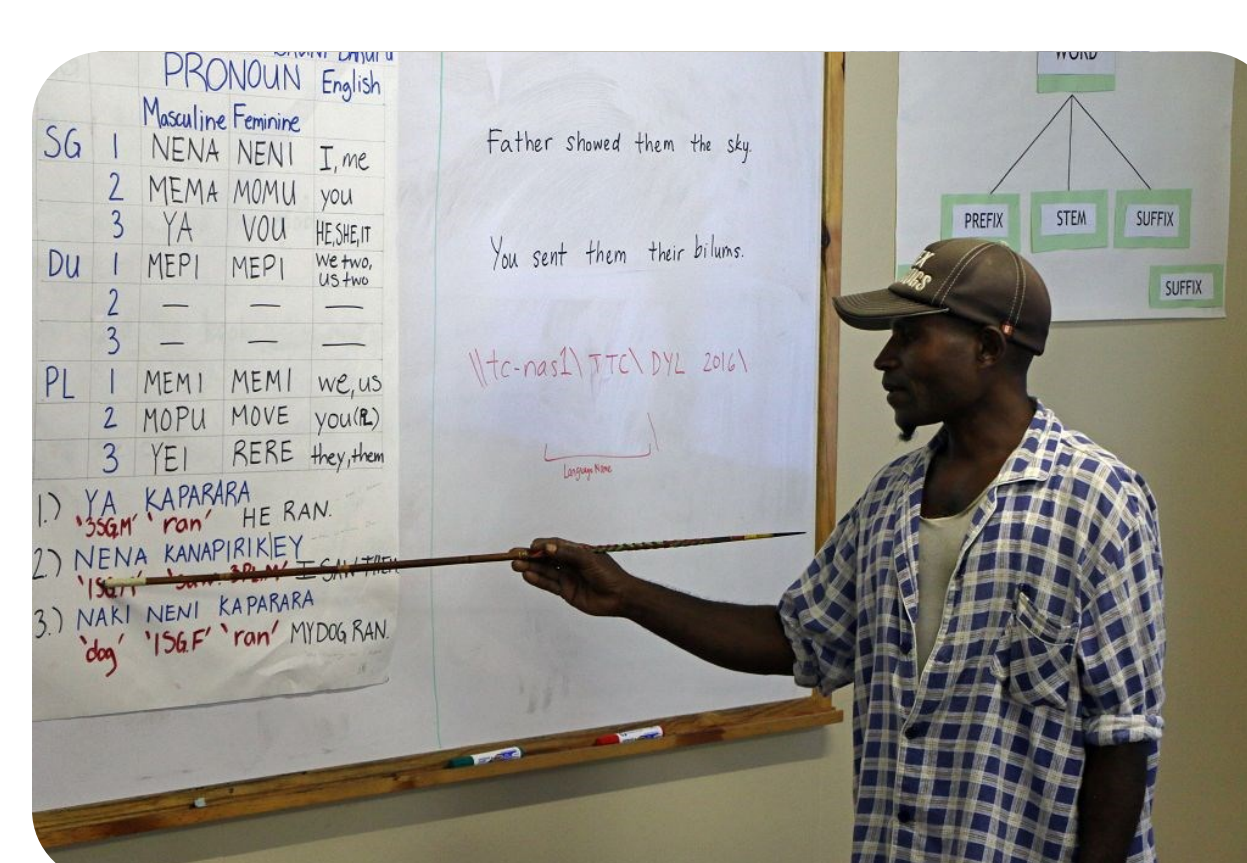 PRONOUN English
Masculine Feminine
SG 1 NENA NENI I, me
2 MEMA MOMU you
3 YA VOU HE,SHE,IT
DU 1 MEPI MEPI we two, us two
2 — — —
3 — — —
PL 1 MEMI MEMI we, us
2 MOPU MOVE you (PL)
3 YEI RERE they, them
1.) YA KAPARARA
'3SG.M' 'ran' HE RAN.
2.) NENA KANAPIRIKEY
'1SG.M' 'saw. 3PL.M' I SAW THEM
3.) NAKI NENI KAPARARA
'dog' '1SG.F' 'ran' MY DOG RAN.
Father showed them the sky.
You sent them their bilums.
\\tc-nas1\TTC\DYL 2016\
Language Name
WORD
PREFIX STEM SUFFIX
SUFFIX